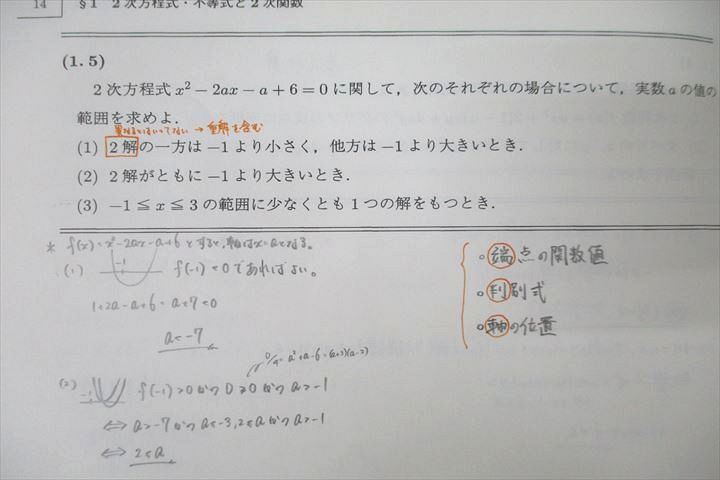 14 §1 2次方程式・不等式と2次関数
(1.5)
2次方程式 x² − 2ax − a + 6 = 0 に関して，次のそれぞれの場合について，実数 a の値の
範囲を求めよ．
異なるとはいってない → 重解を含む
(1) 2解の一方は −1 より小さく，他方は −1 より大きいとき．
(2) 2解がともに −1 より大きいとき．
(3) −1 ≦ x ≦ 3 の範囲に少なくとも1つの解をもつとき．
* f(x)=x²-2ax-a+6とすると、軸はx=aとなる。
(1) -1 f(-1)<0であればよい。
1+2a-a+6=a+7<0
a<-7
D/4=a²+a-6=(a+3)(a-2)
(2) -1 f(-1)>0かつD≧0かつa>-1
⇔ a>-7かつa≤-3, 2≤aかつa>-1
⇔ 2≤a
○端点の関数値
○判別式
○軸の位置